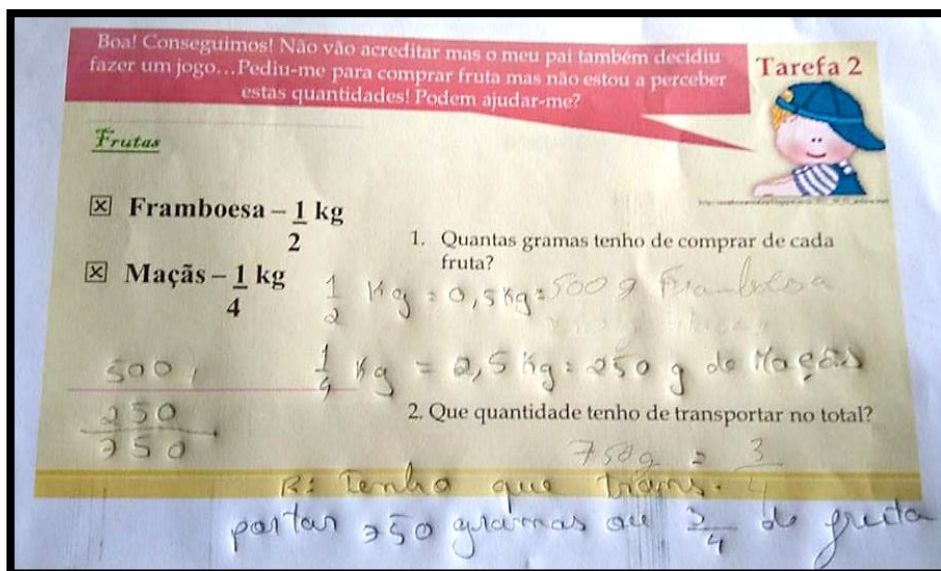 Boa! Conseguimos! Não vão acreditar mas o meu pai também decidiu
fazer um jogo...Pediu-me para comprar fruta mas não estou a perceber
estas quantidades! Podem ajudar-me?
Tarefa 2
Frutas
☒ Framboesa – 1/2 kg
☒ Maçãs – 1/4 kg
1. Quantas gramas tenho de comprar de cada
fruta?
1/2 Kg = 0,5 Kg = 500 g Framboesa
1/4 Kg = 2,5 Kg = 250 g de Maçãs
500
250
750
2. Que quantidade tenho de transportar no total?
750g = 3/4
R: Tenho que trans-
portar 750 gramas ou 3/4 de fruta